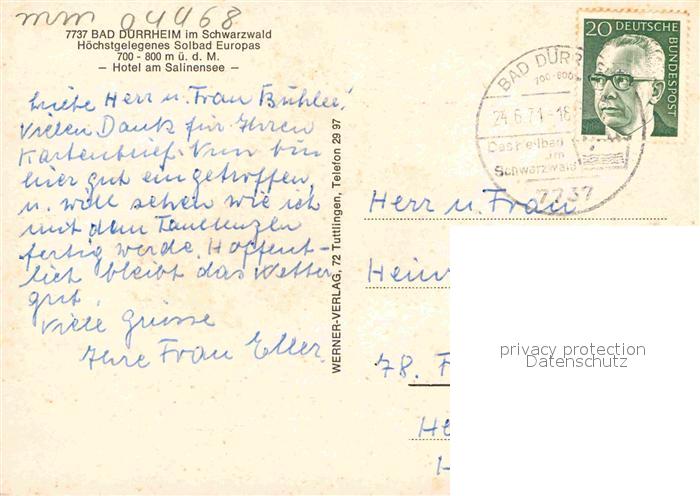 mm 04468
7737 BAD DÜRRHEIM im Schwarzwald
Höchstgelegenes Solbad Europas
700 - 800 m ü. d. M.
— Hotel am Salinensee —
Liebe Herr u. Frau Bühler!
Vielen Dank für Ihren
Kartenbrief. Nun bin
hier gut eingetroffen,
u. will sehen wie ich
mit dem Faullenzen
fertig werde. Hoffent-
lich bleibt das Wetter
gut.
Viele Grüsse
Ihre Frau Eller
WERNER-VERLAG, 72 Tuttlingen, Telefon 29 97
20 DEUTSCHE BUNDESPOST
BAD DÜRR
24.6.71-18
im
Schwarzwald
7737
Herr u. Frau
Hein
78. F
He
privacy protection
Datenschutz